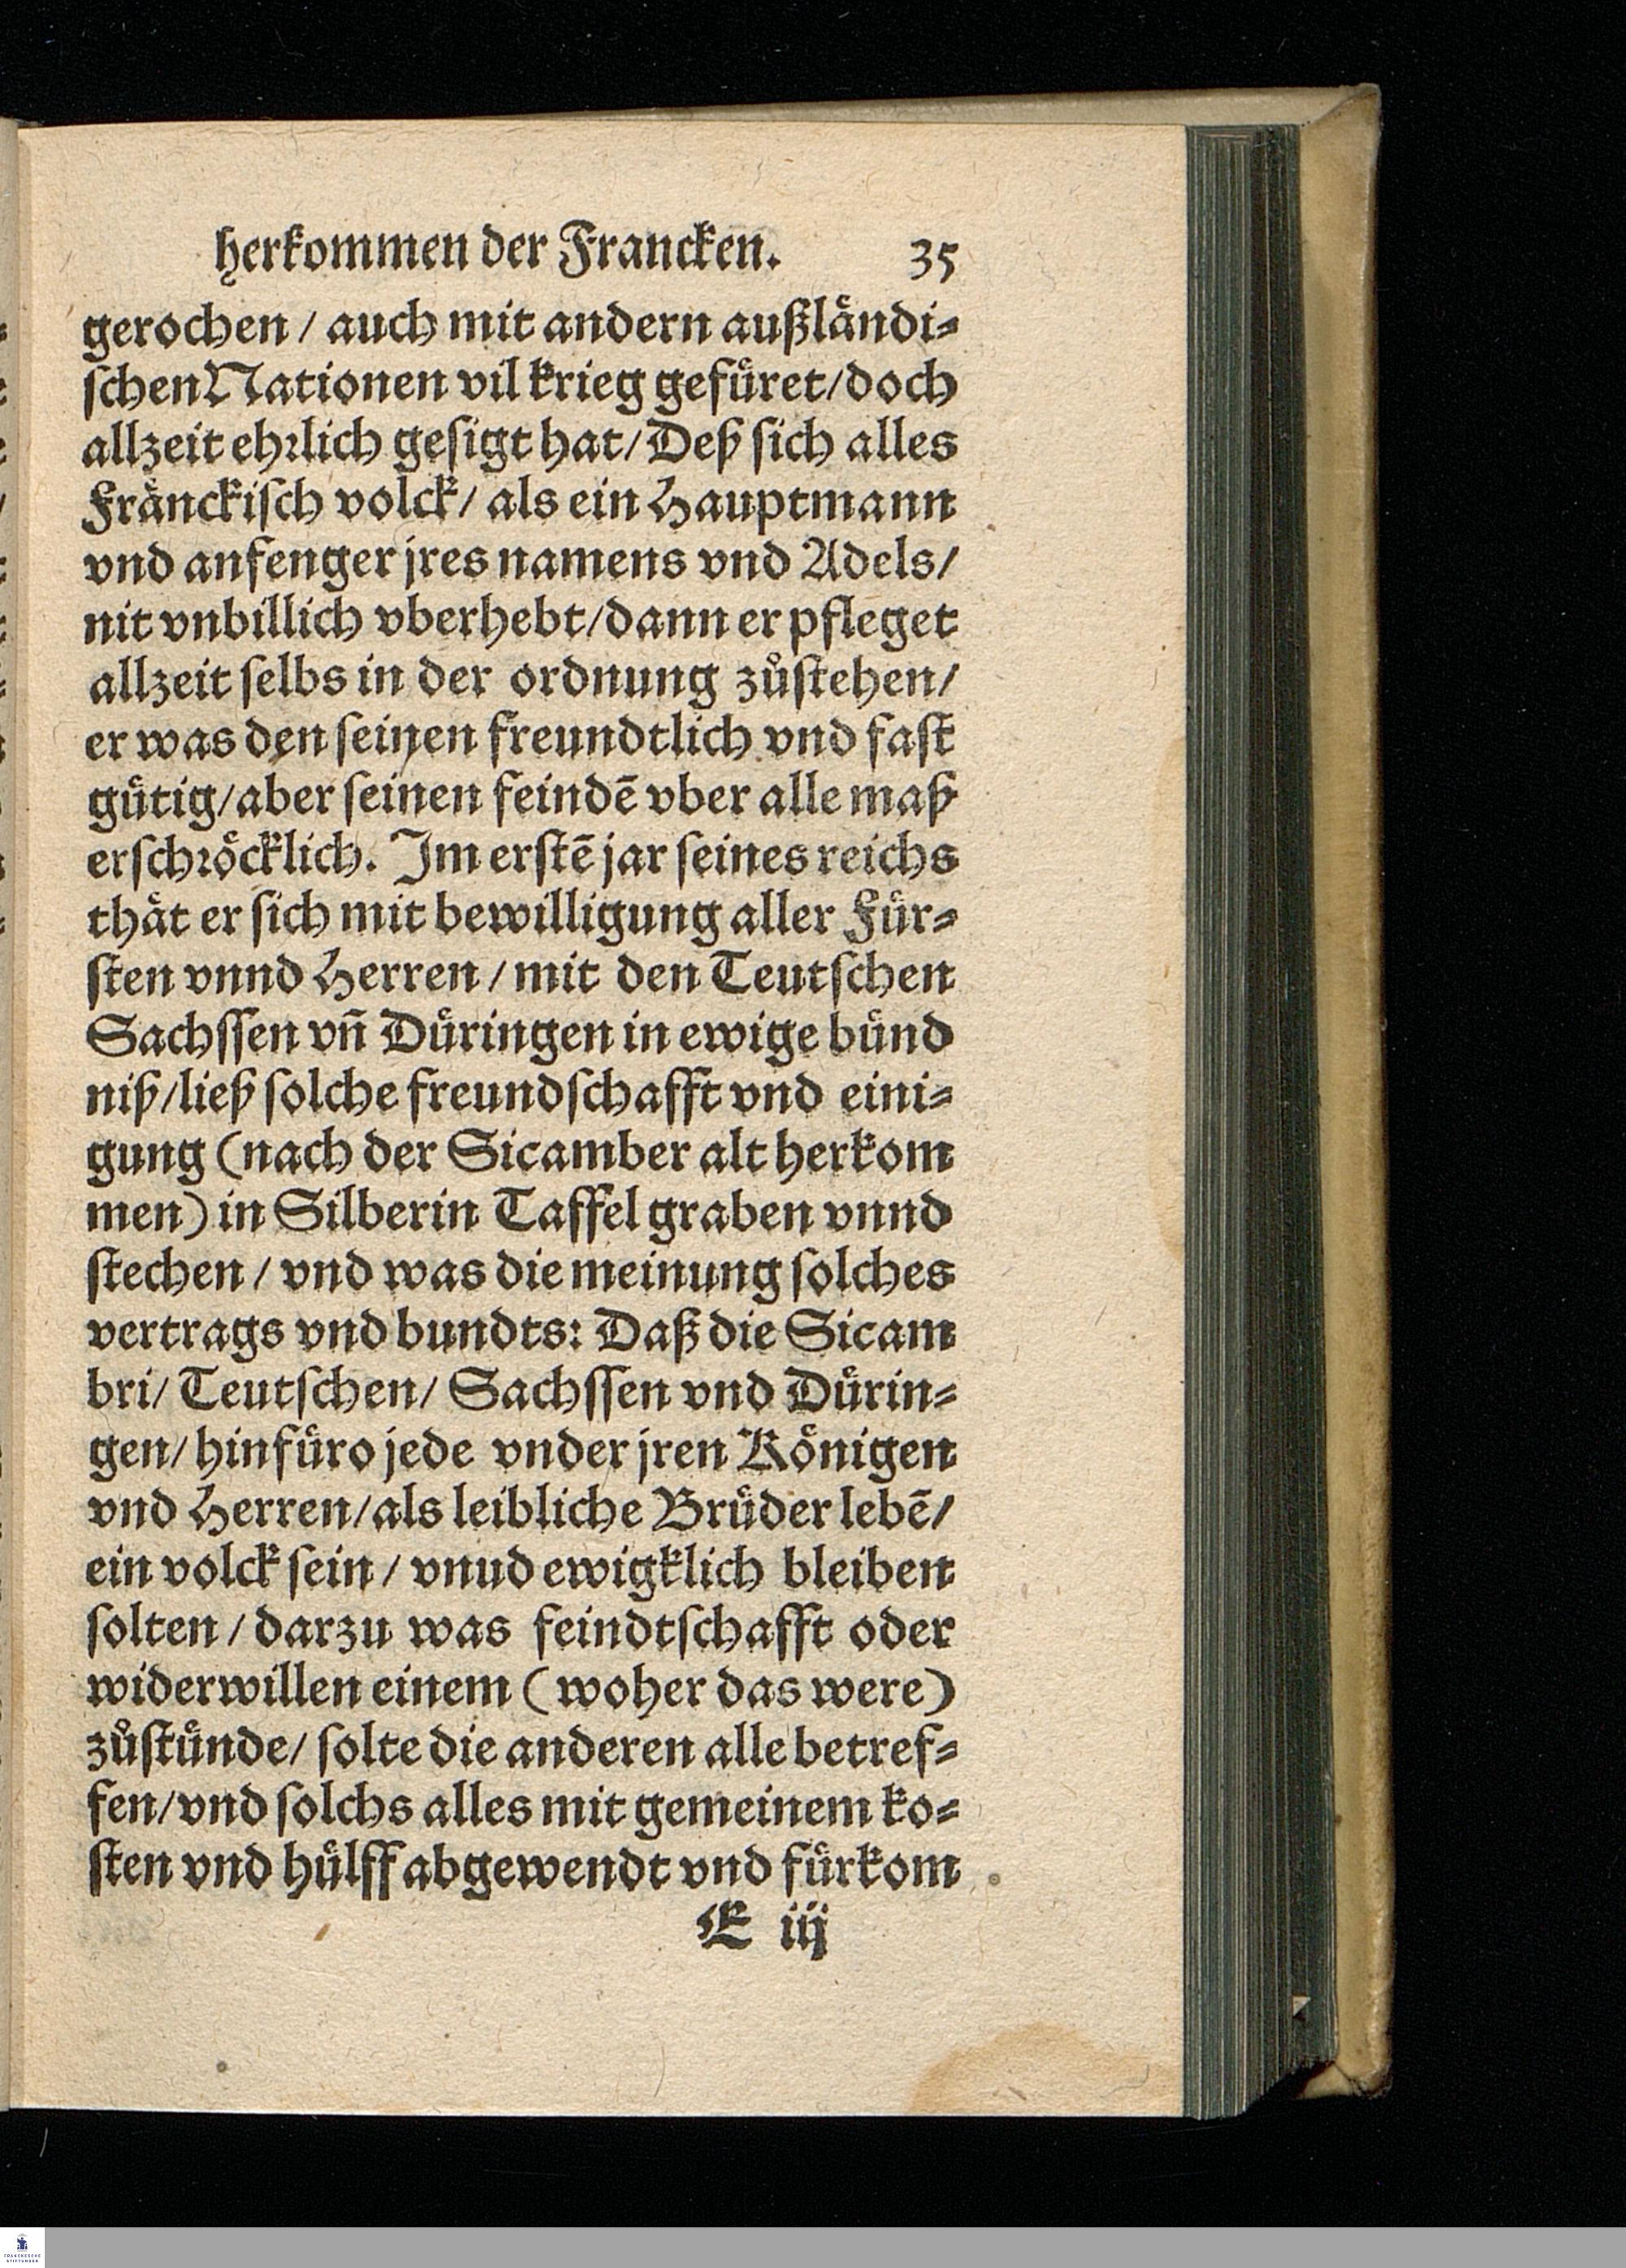 herkommen der Francken. 35
gerochen / auch mit andern außlåndi⸗
ſchen Nationen vil krieg gefuͤret/doch
allzeit ehꝛlich geſigt hat/Deß ſich alles
Fraͤnckiſch volck/ als ein Hauptmann
vnd anfenger jres namens vnd Adels/
nit vnbillich vberhebt/dann er pfleget
allzeit ſelbs in der ordnung zůſtehen/
er was den ſeinen freundtlich vnd faſt
guͤtig/aber ſeinen feindē vber alle maß
erſchꝛoͤcklich. Im erſtē jar ſeines reichs
thaͤt er ſich mit bewilligung aller Fuͤr⸗
ſten vnnd Herren / mit den Teutſchen
Sachſſen vn̄ Duͤringen in ewige buͤnd
niß/ließ ſolche freundſchafft vnd eini⸗
gung (nach der Sicamber alt herkom
men) in Silberin Taffel graben vnnd
ſtechen / vnd was die meinung ſolches
vertrags vnd bundts: Daß die Sicam
bri/ Teutſchen/ Sachſſen vnd Duͤrin⸗
gen/ hinfuͤro jede vnder jren Koͤnigen
vnd Herren/als leibliche Bruͤder lebē/
ein volck ſein / vnud ewigklich bleiben
ſolten / darzu was feindtſchafft oder
widerwillen einem ( woher das were)
zůſtuͤnde/ ſolte die anderen alle betref⸗
fen/vnd ſolchs alles mit gemeinem ko⸗
ſten vnd huͤlff abgewendt vnd fuͤrkom
E iij